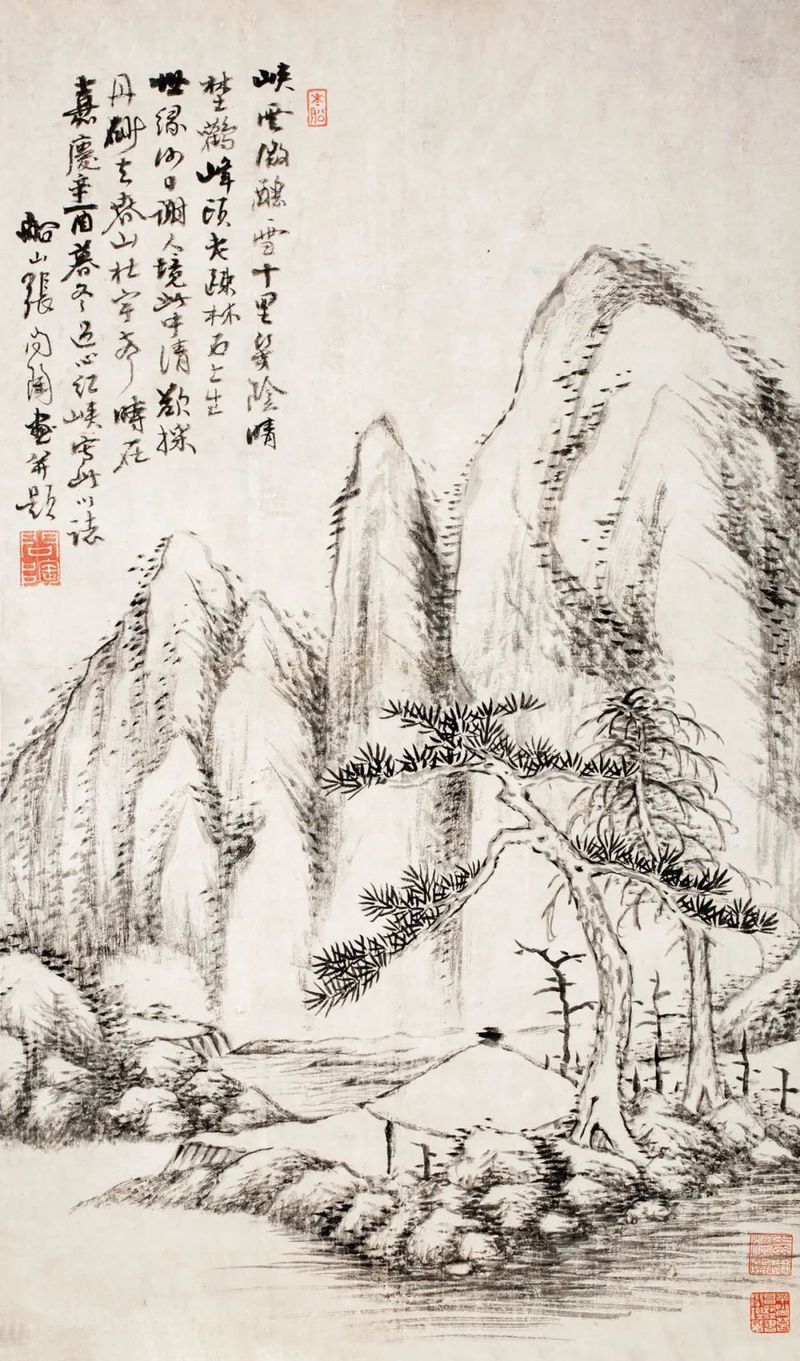 峡雲微釀雪十里幾陰晴
埜鶴峰頂老疎林石上生
世緣何日謝人境此中清欲採
丹砂去春山杜宇聲 時在
嘉慶辛酉暮冬過心紅峡寫此以誌
船山張問陶畫并題